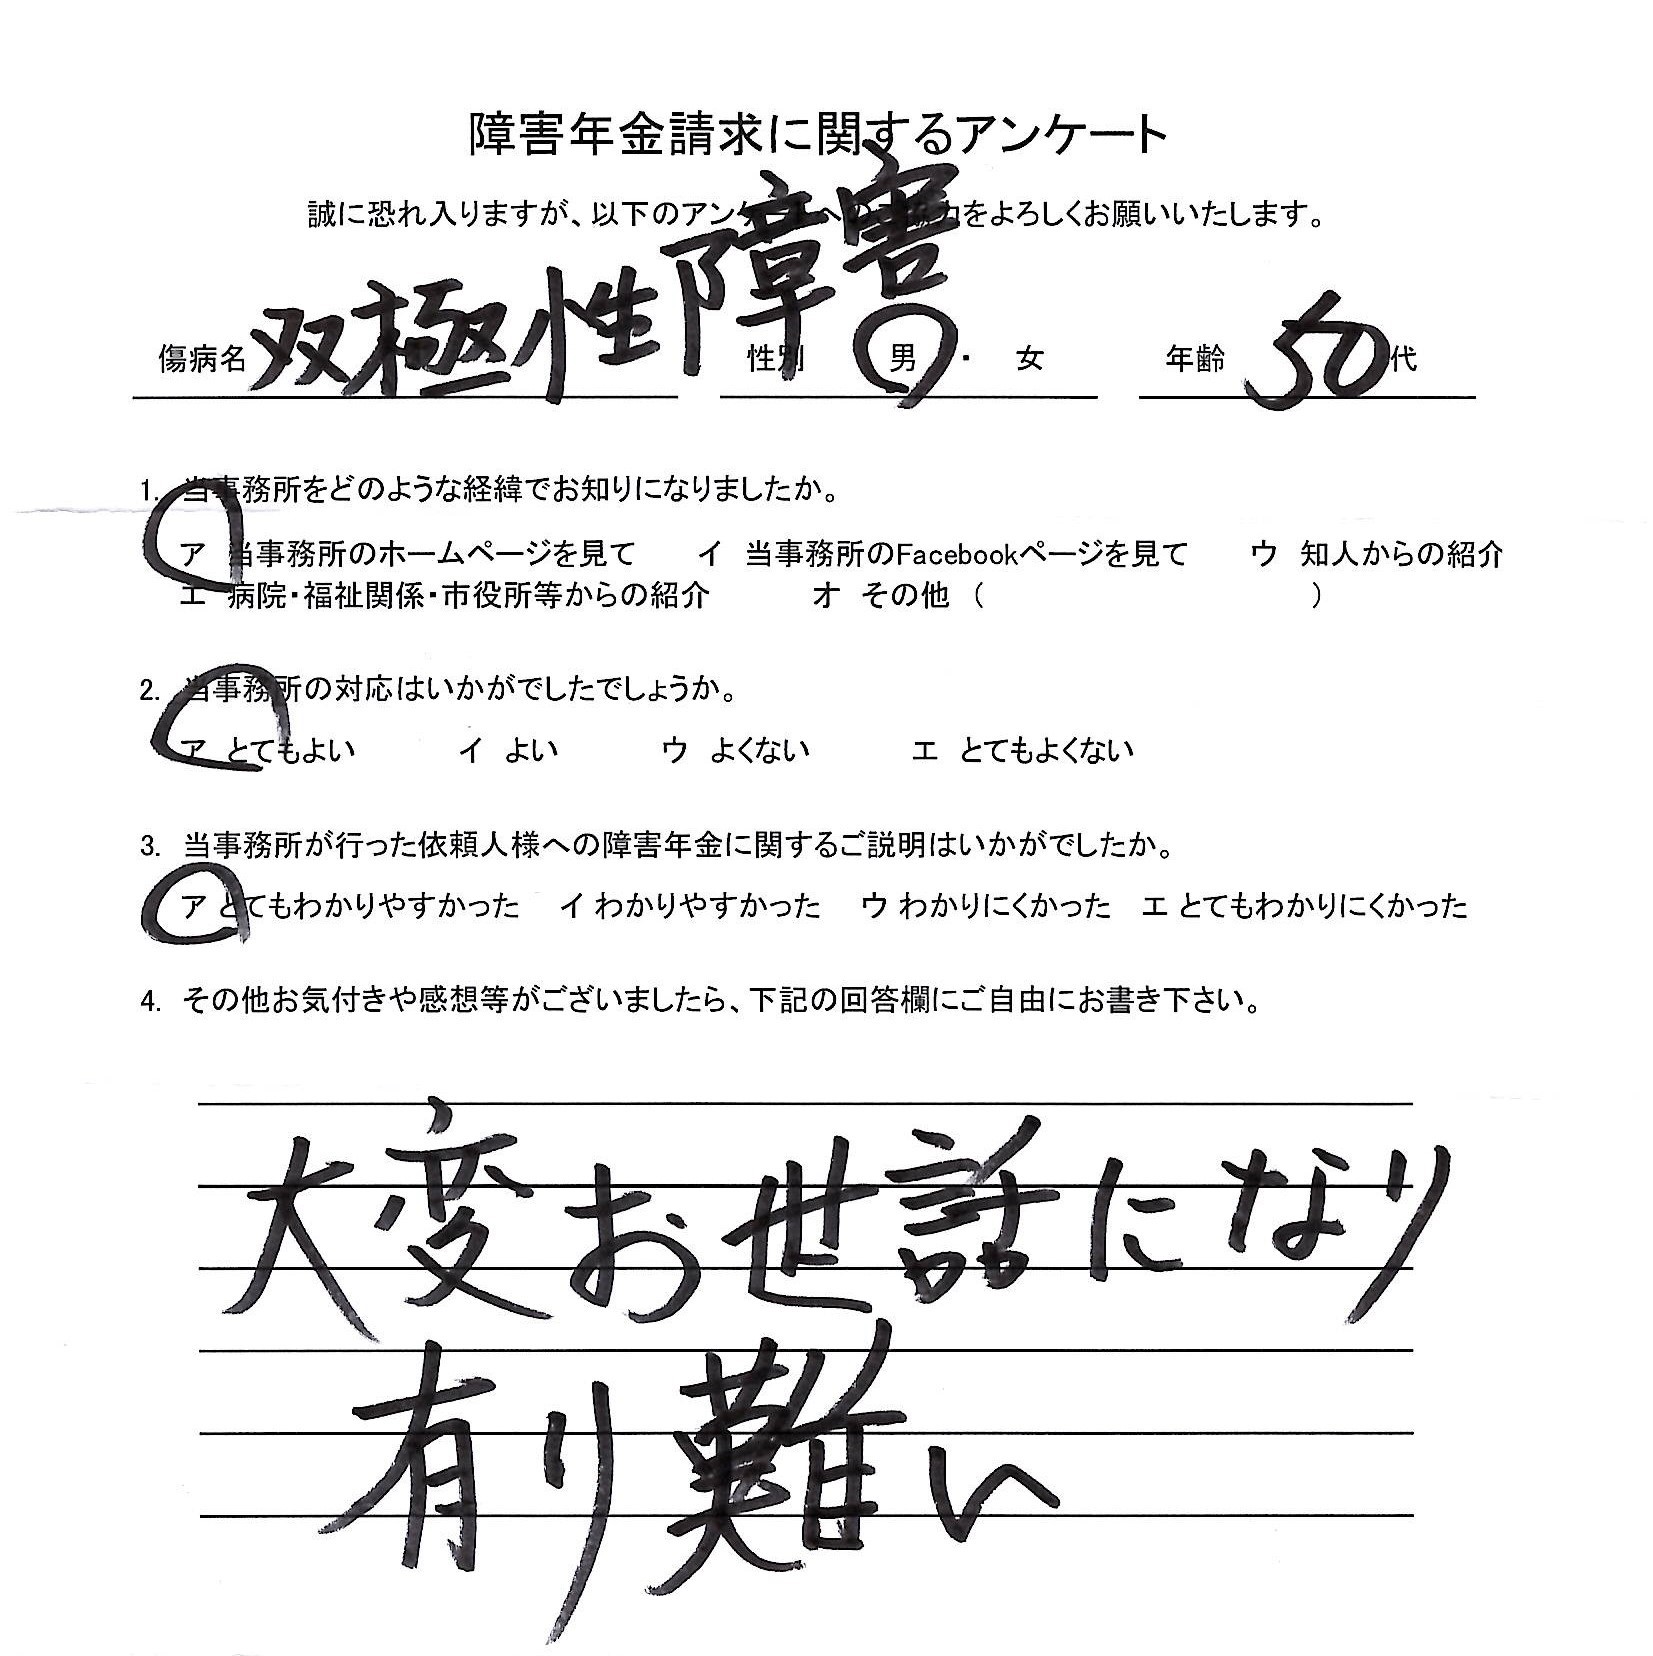 障害年金請求に関するアンケート
誠に恐れ入りますが、以下のアンケートへのご協力をよろしくお願いいたします。
傷病名 双極性障害 性別 男 ・ 女 年齢 50代
1. 当事務所をどのような経緯でお知りになりましたか。
ア 当事務所のホームページを見て イ 当事務所のFacebookページを見て ウ 知人からの紹介
エ 病院・福祉関係・市役所等からの紹介 オ その他 ( )
2. 当事務所の対応はいかがでしたでしょうか。
ア とてもよい イ よい ウ よくない エ とてもよくない
3. 当事務所が行った依頼人様への障害年金に関するご説明はいかがでしたか。
ア とてもわかりやすかった イ わかりやすかった ウ わかりにくかった エ とてもわかりにくかった
4. その他お気付きや感想等がございましたら、下記の回答欄にご自由にお書き下さい。
大変お世話になり
有り難い